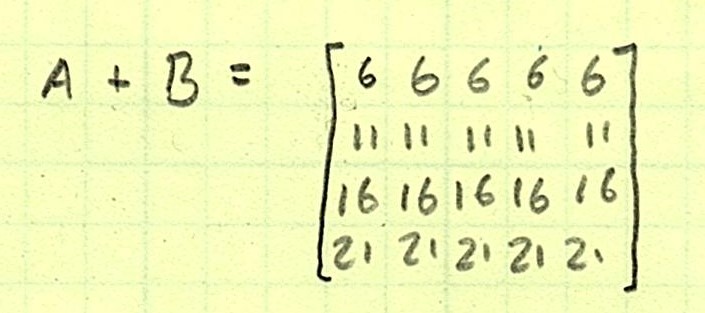 A + B = 6 6 6 6 6
11 11 11 11 11
16 16 16 16 16
21 21 21 21 21